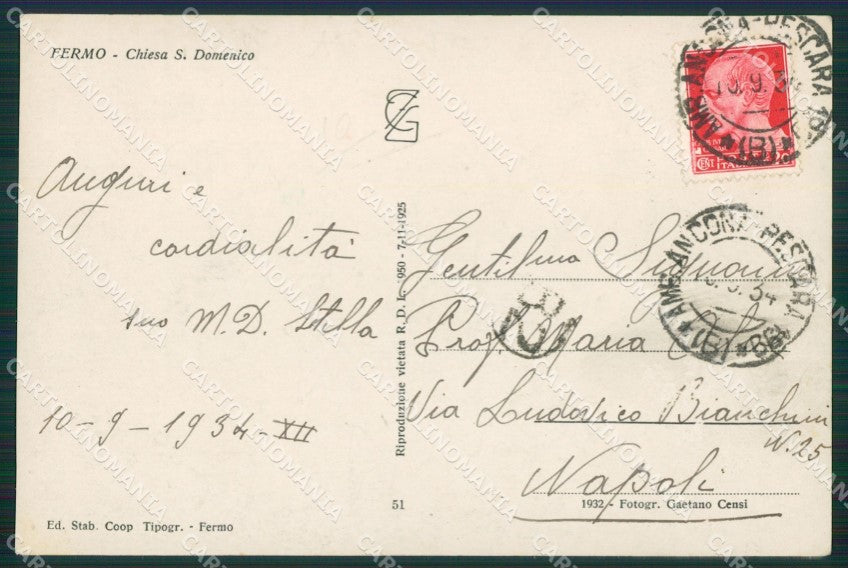 FERMO - Chiesa S. Domenico
Auguri e
cordialità
suo M.D. Stilla
10-9-1934-XII
Ed. Stab. Coop Tipogr. - Fermo
Riproduzione vietata R. D. L. 1950 - 7-11-1925
51
Gentilma Signorina
Prof. Maria
Via Ludovico Bianchini
N. 25
Napoli
1932 - Fotogr. Gaetano Censi
AMB. ANCONA-PESCARA
(B)
CENT
AMB. ANCONA-PESCARA
.9.34
(B)
CARTOLINOMANIA